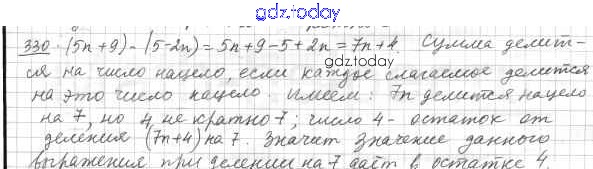 gdz.today
330. (5n+9)-(5-2n)=5n+9-5+2n=7n+4. Сумма делит-
ся на число нацело, если каждое слагаемое делится
gdz.today
на это число нацело. Имеем: 7n делится нацело
на 7, но 4 не кратно 7; число 4- остаток от
деления (7n+4) на 7. Значит значение данного
выражения при делении на 7 даёт в остатке 4.